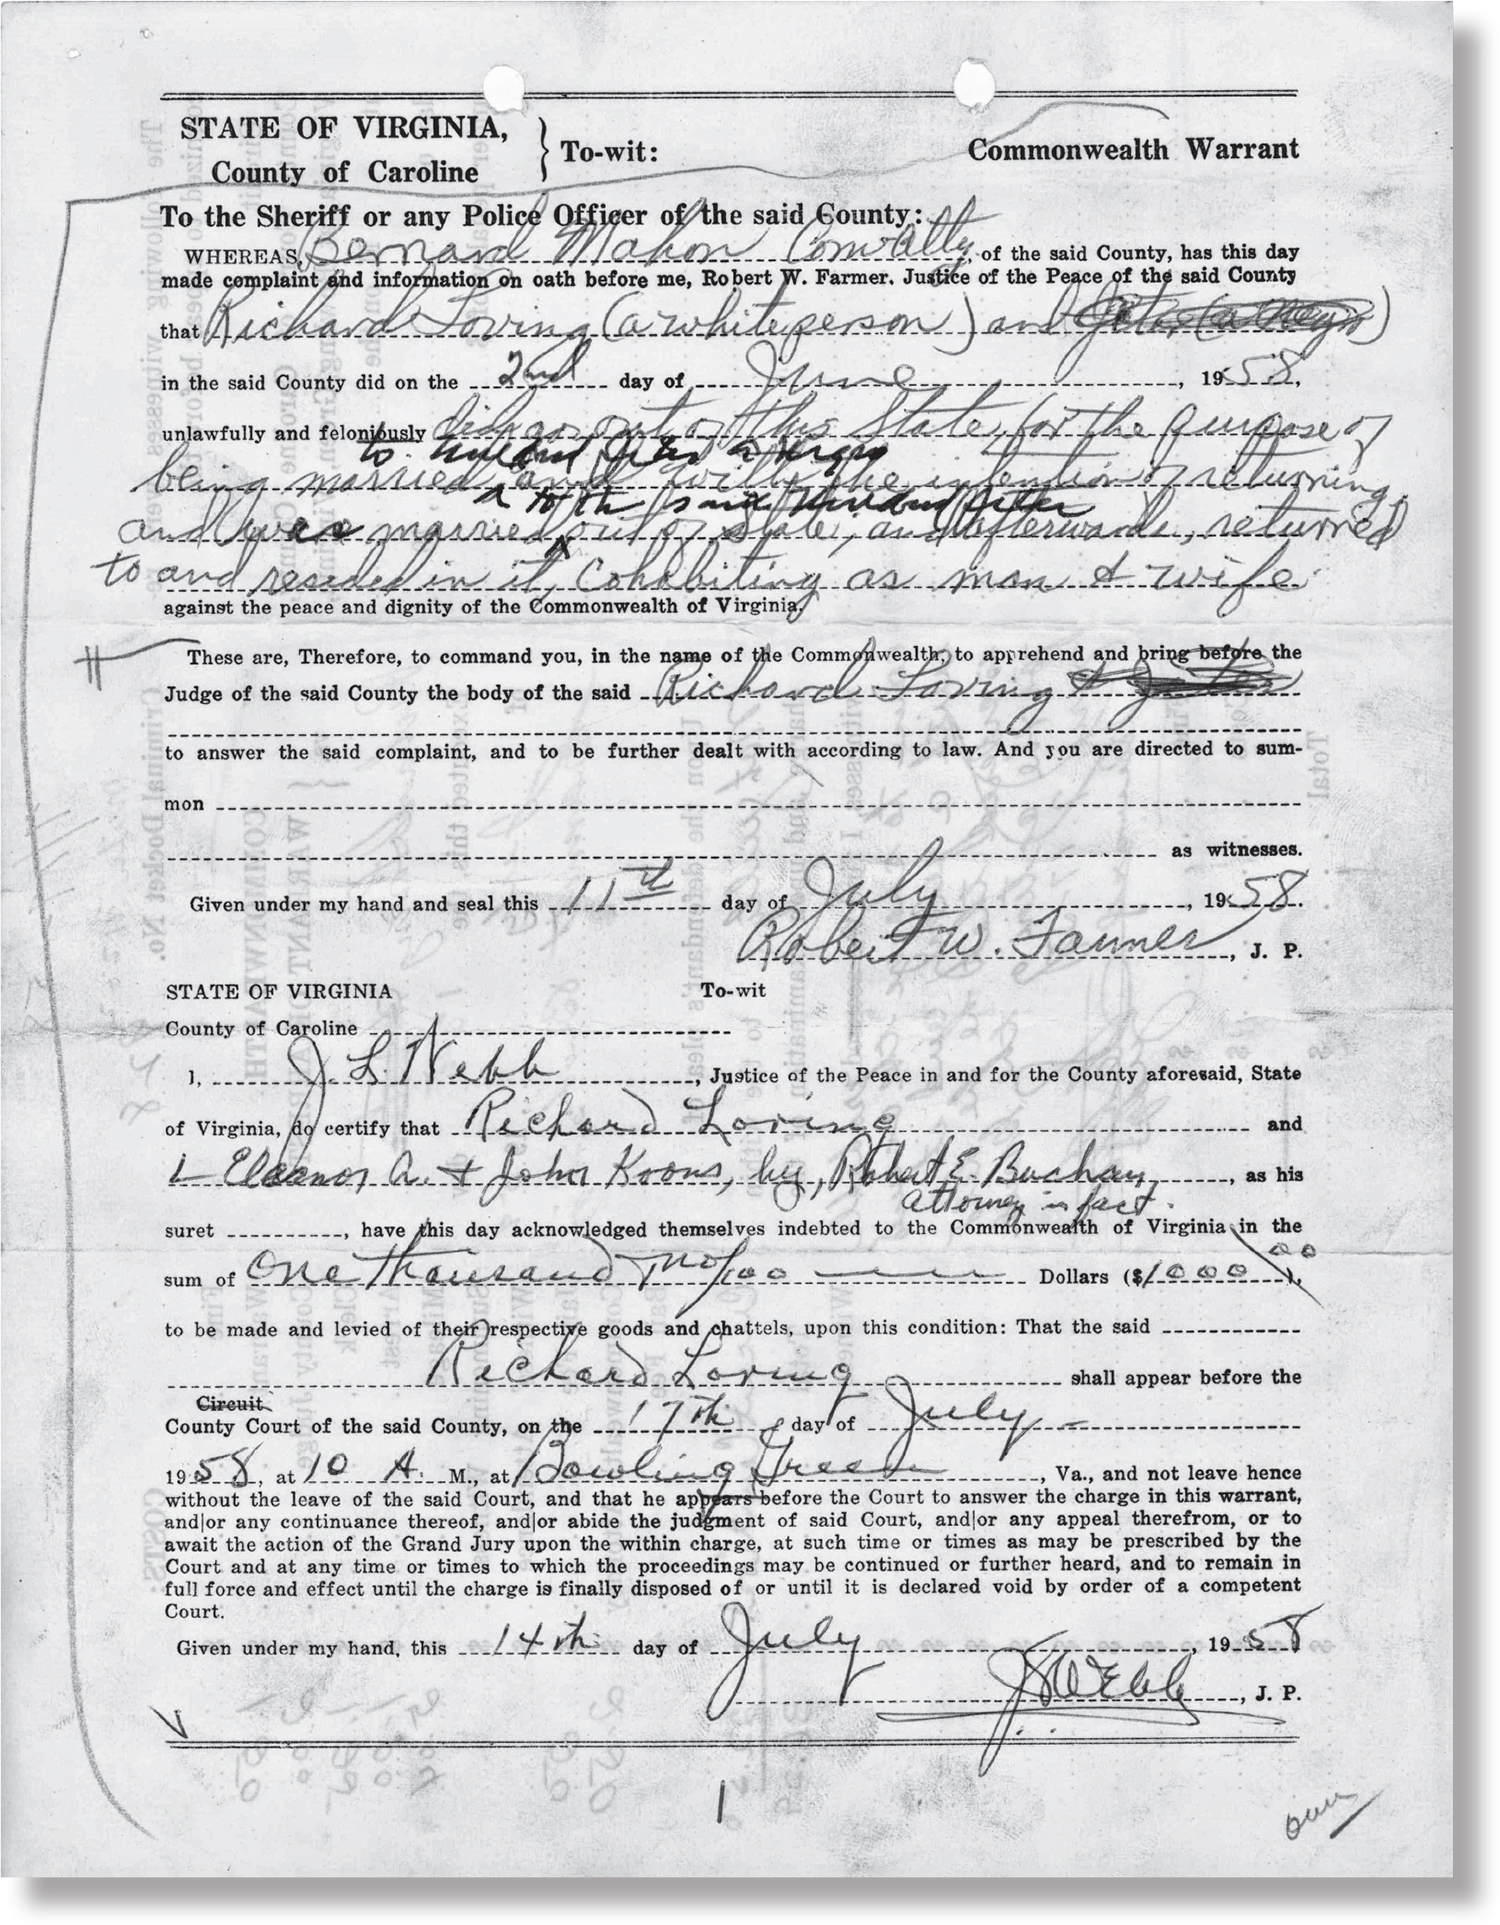 STATE OF VIRGINIA,
County of Caroline
To-wit:
Commonwealth Warrant
To the Sheriff or any Police Officer of the said County:
WHEREAS, Bernard Mahon Conwally, of the said County, has this day
made complaint and information on oath before me, Robert W. Farmer. Justice of the Peace of the said County
that Richard Loving (a white person) and Jeter (a Negro)
in the said County did on the 2nd day of June, 1958,
unlawfully and feloniously did go out of this State, for the purpose of
to Mildred Jeter a Negro
being married and with the intention of returning,
to the said Mildred Jeter
and was married out of State, and afterwards, returned
to and resided in it, Cohabiting as man & wife
against the peace and dignity of the Commonwealth of Virginia.
These are, Therefore, to command you, in the name of the Commonwealth, to apprehend and bring before the
Judge of the said County the body of the said Richard Loving & Jeter
to answer the said complaint, and to be further dealt with according to law. And you are directed to sum-
mon
as witnesses.
Given under my hand and seal this 11th day of July, 1958.
Robert W. Farmer, J. P.
STATE OF VIRGINIA To-wit
County of Caroline
I, J. L. Webb, Justice of the Peace in and for the County aforesaid, State
of Virginia, do certify that Richard Loving and
Eleanor A. + John Koons, by, Robert E. Buchan, as his
attorney in fact.
suret, have this day acknowledged themselves indebted to the Commonwealth of Virginia in the
sum of One thousand no/100 Dollars ($1000 00),
to be made and levied of their respective goods and chattels, upon this condition: That the said
Richard Loving shall appear before the
Circuit
County Court of the said County, on the 17th day of July
1958, at 10 A. M., at Bowling Green, Va., and not leave hence
without the leave of the said Court, and that he appears before the Court to answer the charge in this warrant,
and|or any continuance thereof, and|or abide the judgment of said Court, and|or any appeal therefrom, or to
await the action of the Grand Jury upon the within charge, at such time or times as may be prescribed by the
Court and at any time or times to which the proceedings may be continued or further heard, and to remain in
full force and effect until the charge is finally disposed of or until it is declared void by order of a competent
Court.
Given under my hand, this 14th day of July, 1958
J L Webb, J. P.
1